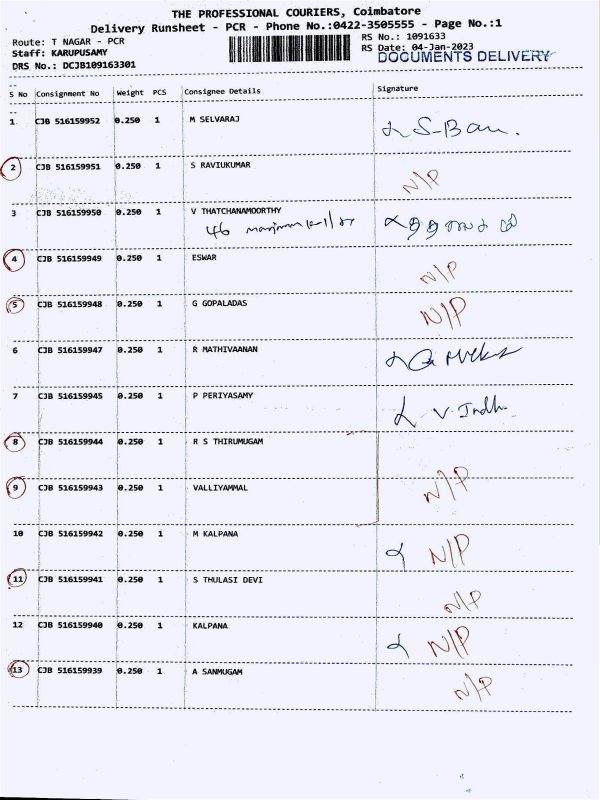 THE PROFESSIONAL COURIERS, Coimbatore
Delivery Runsheet - PCR - Phone No.:0422-3505555 - Page No.:1
Route: T NAGAR - PCR
RS No.: 1091633
Staff: KARUPUSAMY
RS Date: 04-Jan-2023
DRS No.: DCJB109163301
DOCUMENTS DELIVERY
S No Consignment No Weight PCS Consignee Details Signature
1 CJB 516159952 0.250 1 M SELVARAJ
2 CJB 516159951 0.250 1 S RAVIUKUMAR N/P
3 CJB 516159950 0.250 1 V THATCHANAMOORTHY
46
4 CJB 516159949 0.250 1 ESWAR N/P
5 CJB 516159948 0.250 1 G GOPALADAS N/P
6 CJB 516159947 0.250 1 R MATHIVAANAN
7 CJB 516159945 0.250 1 P PERIYASAMY V. Indh
8 CJB 516159944 0.250 1 R S THIRUMUGAM
9 CJB 516159943 0.250 1 VALLIYAMMAL N/P
10 CJB 516159942 0.250 1 M KALPANA N/P
11 CJB 516159941 0.250 1 S THULASI DEVI N/P
12 CJB 516159940 0.250 1 KALPANA N/P
13 CJB 516159939 0.250 1 A SANMUGAM N/P